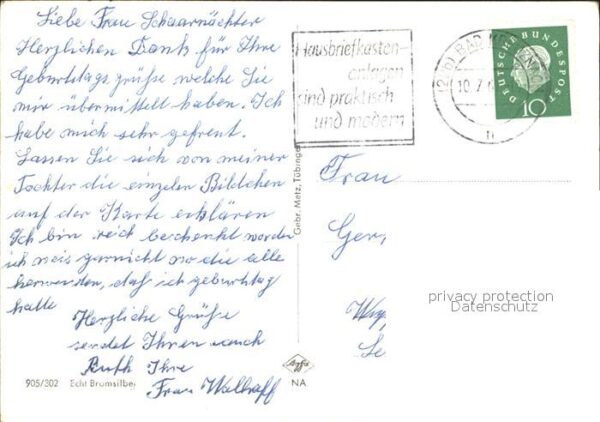 Liebe Frau Schaarnächter
Herzlichen Dank für Ihre
Geburtstags grüße welche Sie
mir übermittelt haben. Ich
habe mich sehr gefreut.
Lassen Sie sich von meiner
Tochter die einzelen Bildchen
auf der Karte erklären
Ich bin reich beschenkt worden
ich weis garnicht wo die alle
herwenden, daß ich geburtstag
hatte
Herzliche Grüße
sendet Ihnen auch
Ruth Ihre
Frau Wallraff
905/302 Echt Bromsilber
Gebr. Metz, Tübingen
Agfa
NA
Hausbriefkasten-
anlagen
sind praktisch
und modern
BAD
10.7.
n
DEUTSCHE BUNDESPOST
10
Frau
Ger
Wup
privacy protection
Datenschutz